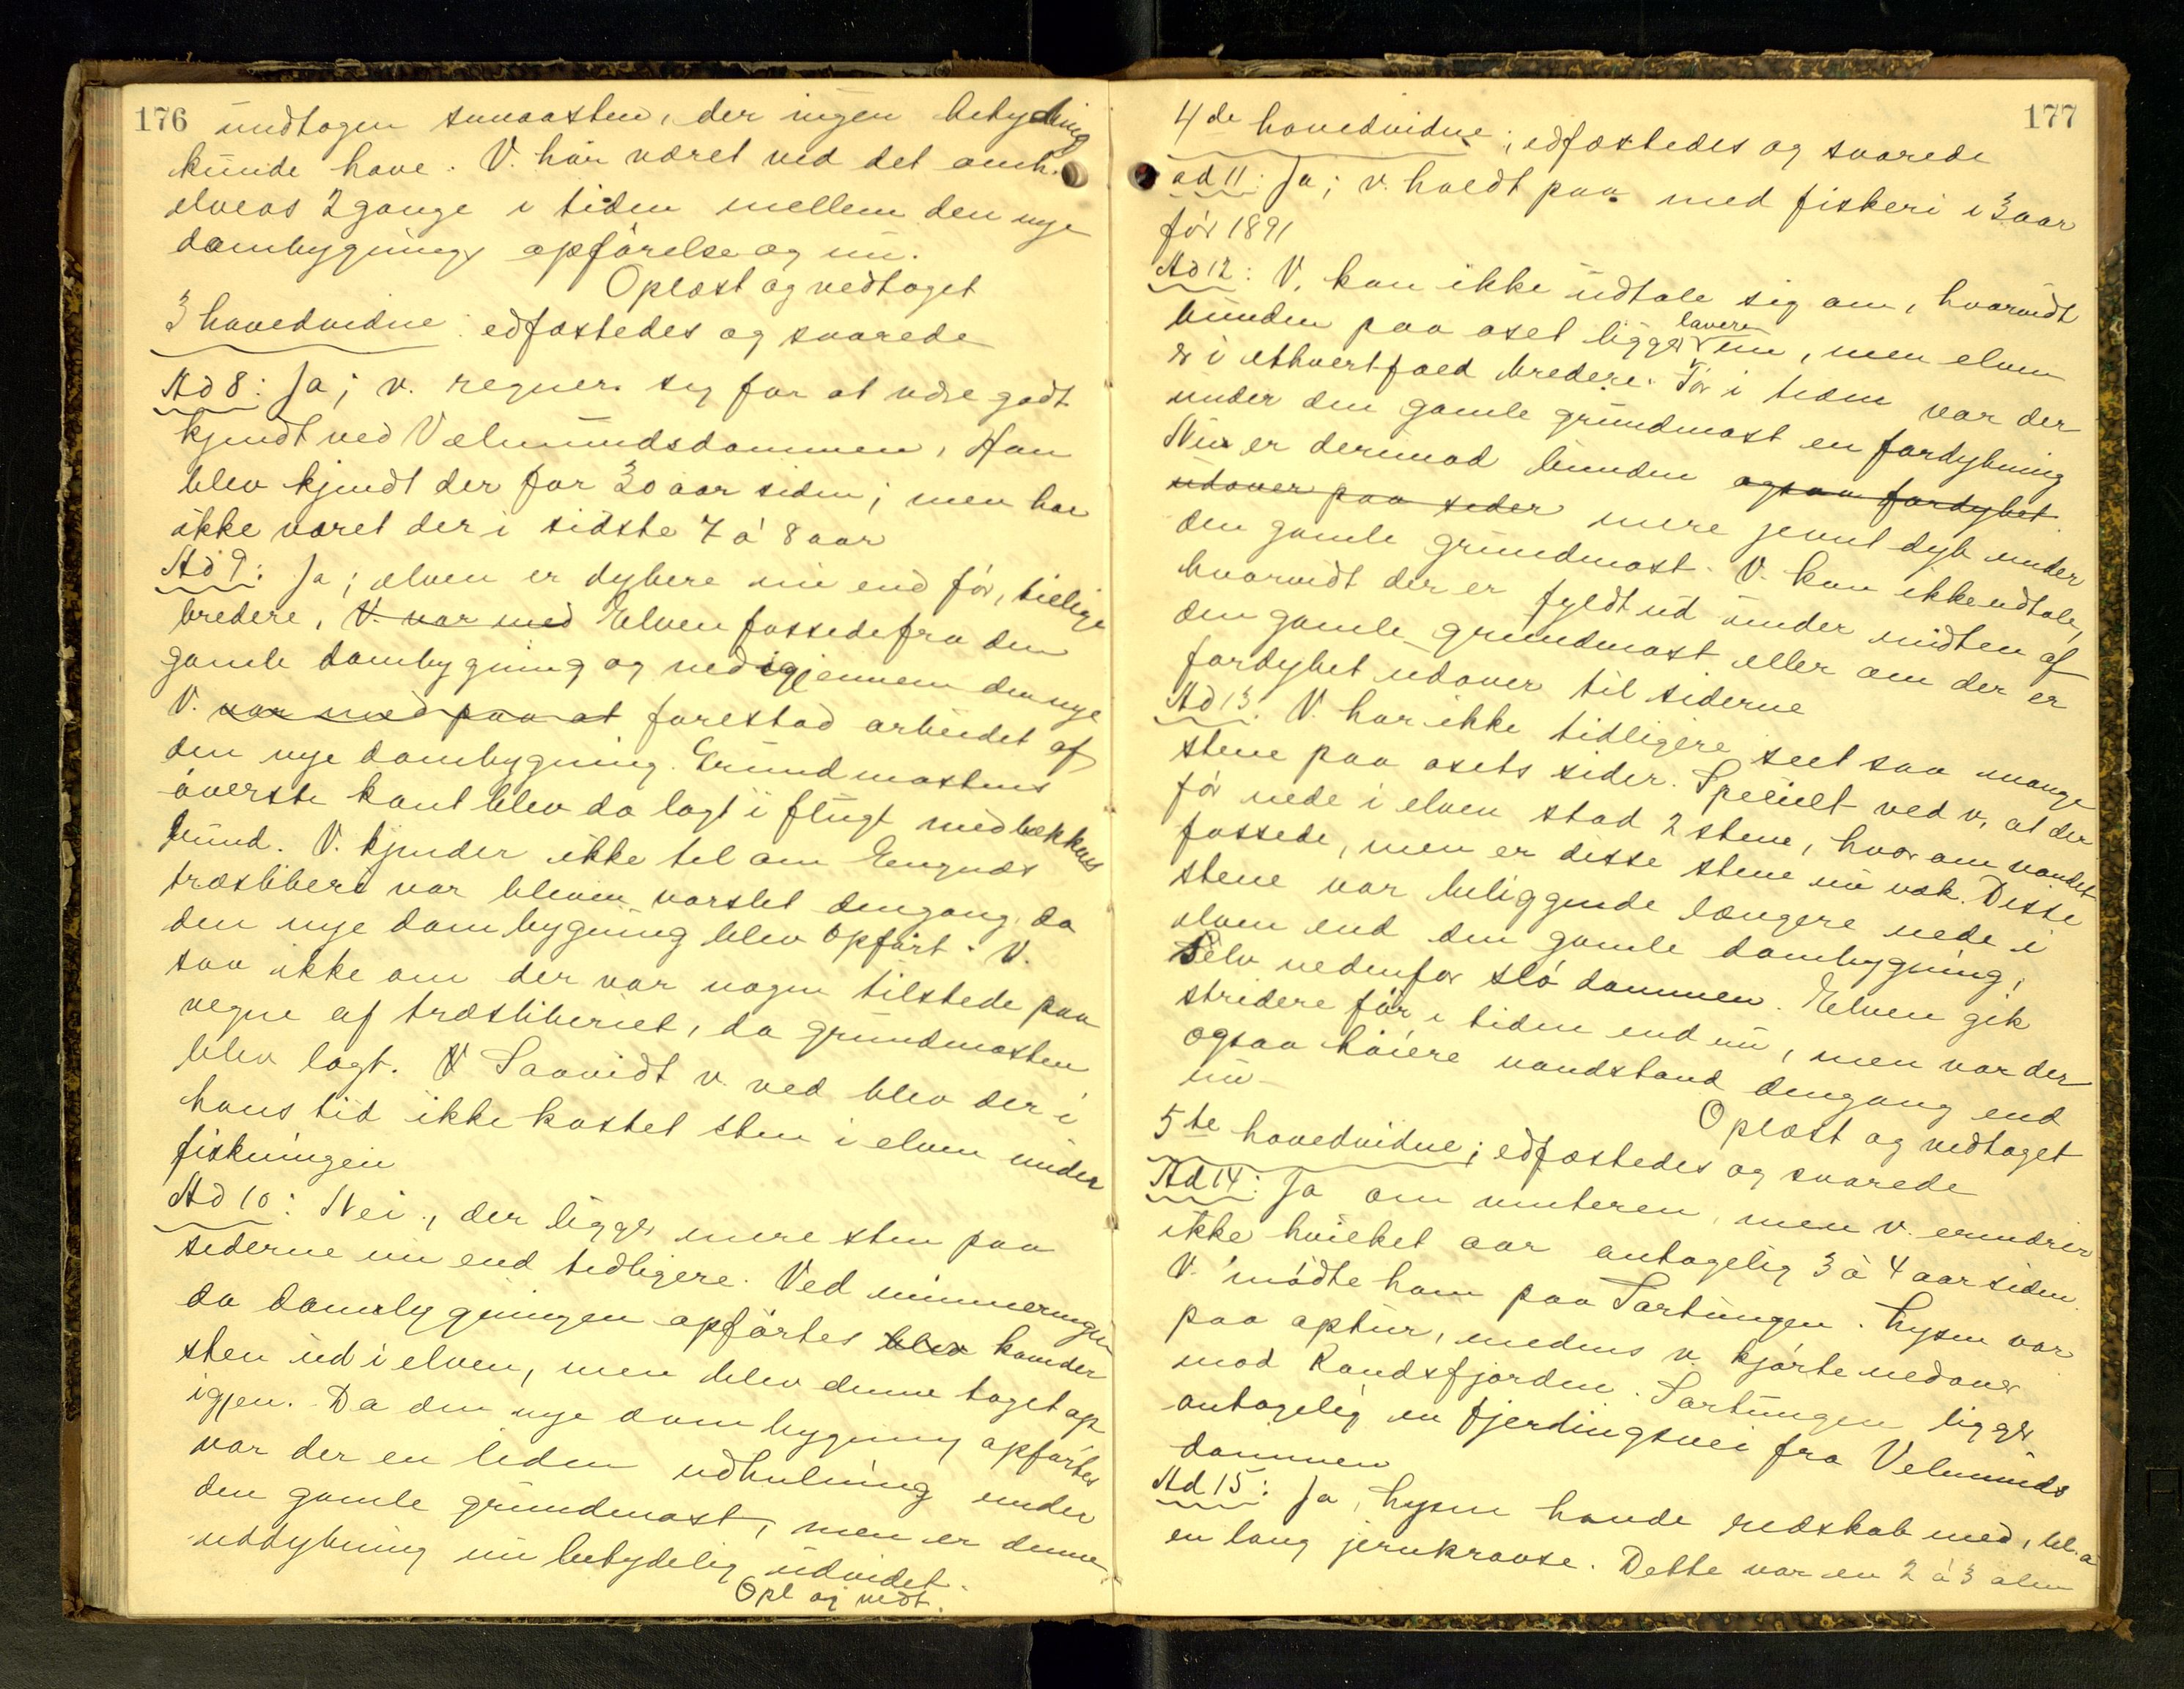 176
undtagen smaasten, der ingen betydning
kunde have. V. har været ved det omh.
elveos 2 gange i tiden mellem den nye
dambygnings opførelse og nu.
Oplæst og vedtaget
3 hovedvidne: edfæstedes og svarede
Ad 8: Ja; v. regner sig for at være godt
kjendt ved Vælmundsdammen. Han
blev kjendt der for 30 aar siden; men har
ikke været der i sidste 7 á 8 aar
Ad 9: Ja; elven er dybere nu end før, tillige
bredere, V. var med Elven fossede fra den
gamle dambygning og ned igjennem den nye
V. var med paa at forestod arbeidet af
den nye dambygning. Grundmostens
øverste kant blev da lagt i flugt med bækkens
bund. V. kjender ikke til om
træsliberi var bleven varslet dengang da
den nye dambygning blev opført. V.
saa ikke om der var nogen tilstede paa
vegne af træsliberiet, da grundmosten
blev lagt. V Saavidt v. ved blev der i
hans tid ikke kastet sten i elven under
fiskningen
Ad 10: Nei, der ligger mere sten paa
siderne nu end tidligere. Ved mineringen
da dambygningen opførtes blev kom der
sten ud i elven, men blev denne taget op
igjen. Da den nye dambygning opførtes
var der en liden udhulning under
den gamle grundmost, men er denne
uddybning nu betydelig udvidet.
Opl og vedt.
177
4de hovedvidne; edfæstedes og svarede
ad 11: Ja; v. holdt paa med fiskeri i 3 aar
før 1891
Ad 12: V. kan ikke udtale sig om, hvorvidt
bunden paa oset ligger lavere nu, men elven
er i ethvertfald bredere. Før i tiden var der
under den gamle grundmost en fordybning
Nu er derimod bunden ogsaa fordybet
udover paa sider mere jevnt dyb under
den gamle grundmost. V. kan ikke udtale,
hvorvidt der er fyldt ud under midten af
den gamle grundmost eller om der er
fordybet udover til siderne
Ad 13: V. har ikke tidligere seet saa mange
stene paa osets sider. Specielt ved v, at der
før nede i elven stod 2 stene, hvor om vandet
fossede, men er disse stene nu væk. Disse
stene var beliggende længere nede i
elven end den gamle dambygning;
Selv nedenfor slódammen. Elven gik
stridere før i tiden end nu, men var der
ogsaa høiere vandstand dengang end
nu-
Oplæst og vedtaget
5te hovedvidne; edfæstedes og svarede
Ad 14: Ja om vinteren, men v. erindrer
ikke hvilket aar antagelig 3 á 4 aar siden.
V. mødte ham paa Sortungen. Lysen var
paa optur, medens v. kjørte nedover
mod Randsfjorden. Sortungen ligger
antagelig en fjerdingsvei fra Velmunds
dammen
Ad 15: Ja, Lysen havde redskab med, bl.a
en lang jernkravse. Dette var en 2 á 3 alen